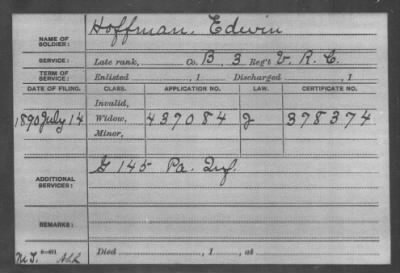 NAME OF SOLDIER: Hoffman, Edwin
SERVICE: Late rank, Co. B, 3 Reg't V. R. C.
TERM OF SERVICE: Enlisted , 1 Discharged , 1
DATE OF FILING. CLASS. APPLICATION NO. LAW. CERTIFICATE NO.
Invalid,
1890 July 14 Widow, 437084 J 378374.
Minor,
ADDITIONAL SERVICES: G 145 Pa. Inf.
REMARKS:
Died , 1 , at